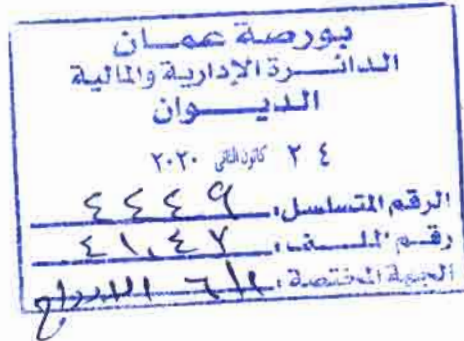 بورصة عمـــان
الدائـــرة الإدارية والمالية
الديـــوان
٢ ٤ كانون الثاني ٢٠٢٠
الرقم المتسلسل: ٤٤٤٩
رقم الملف: ٤١,٤٧
الجهة المختصة: